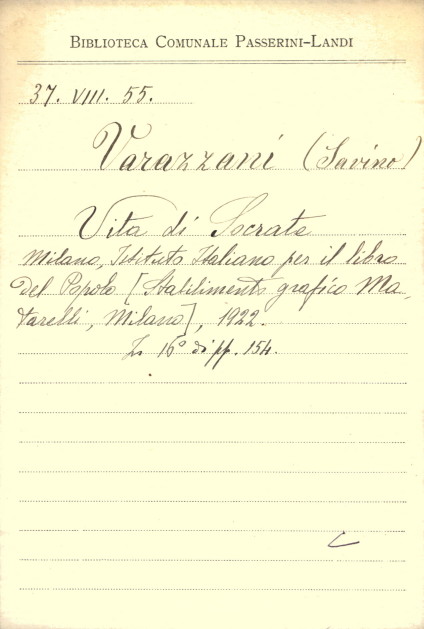 BIBLIOTECA COMUNALE PASSERINI-LANDI
37. VIII. 55.
Varazzani (Savino)
Vita di Socrate
Milano, Istituto Italiano per il libro
del Popolo [Stabilimento grafico Ma-
tarelli, Milano], 1922.
In 16° di pp. 154.
C